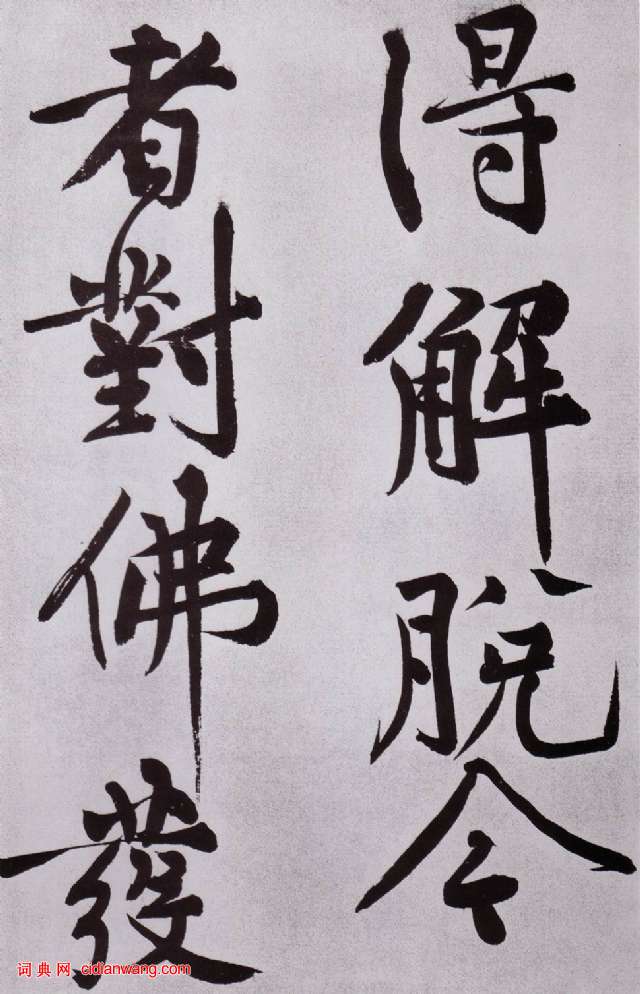 得解脱今
者對佛發
词典网 cidianwang.com